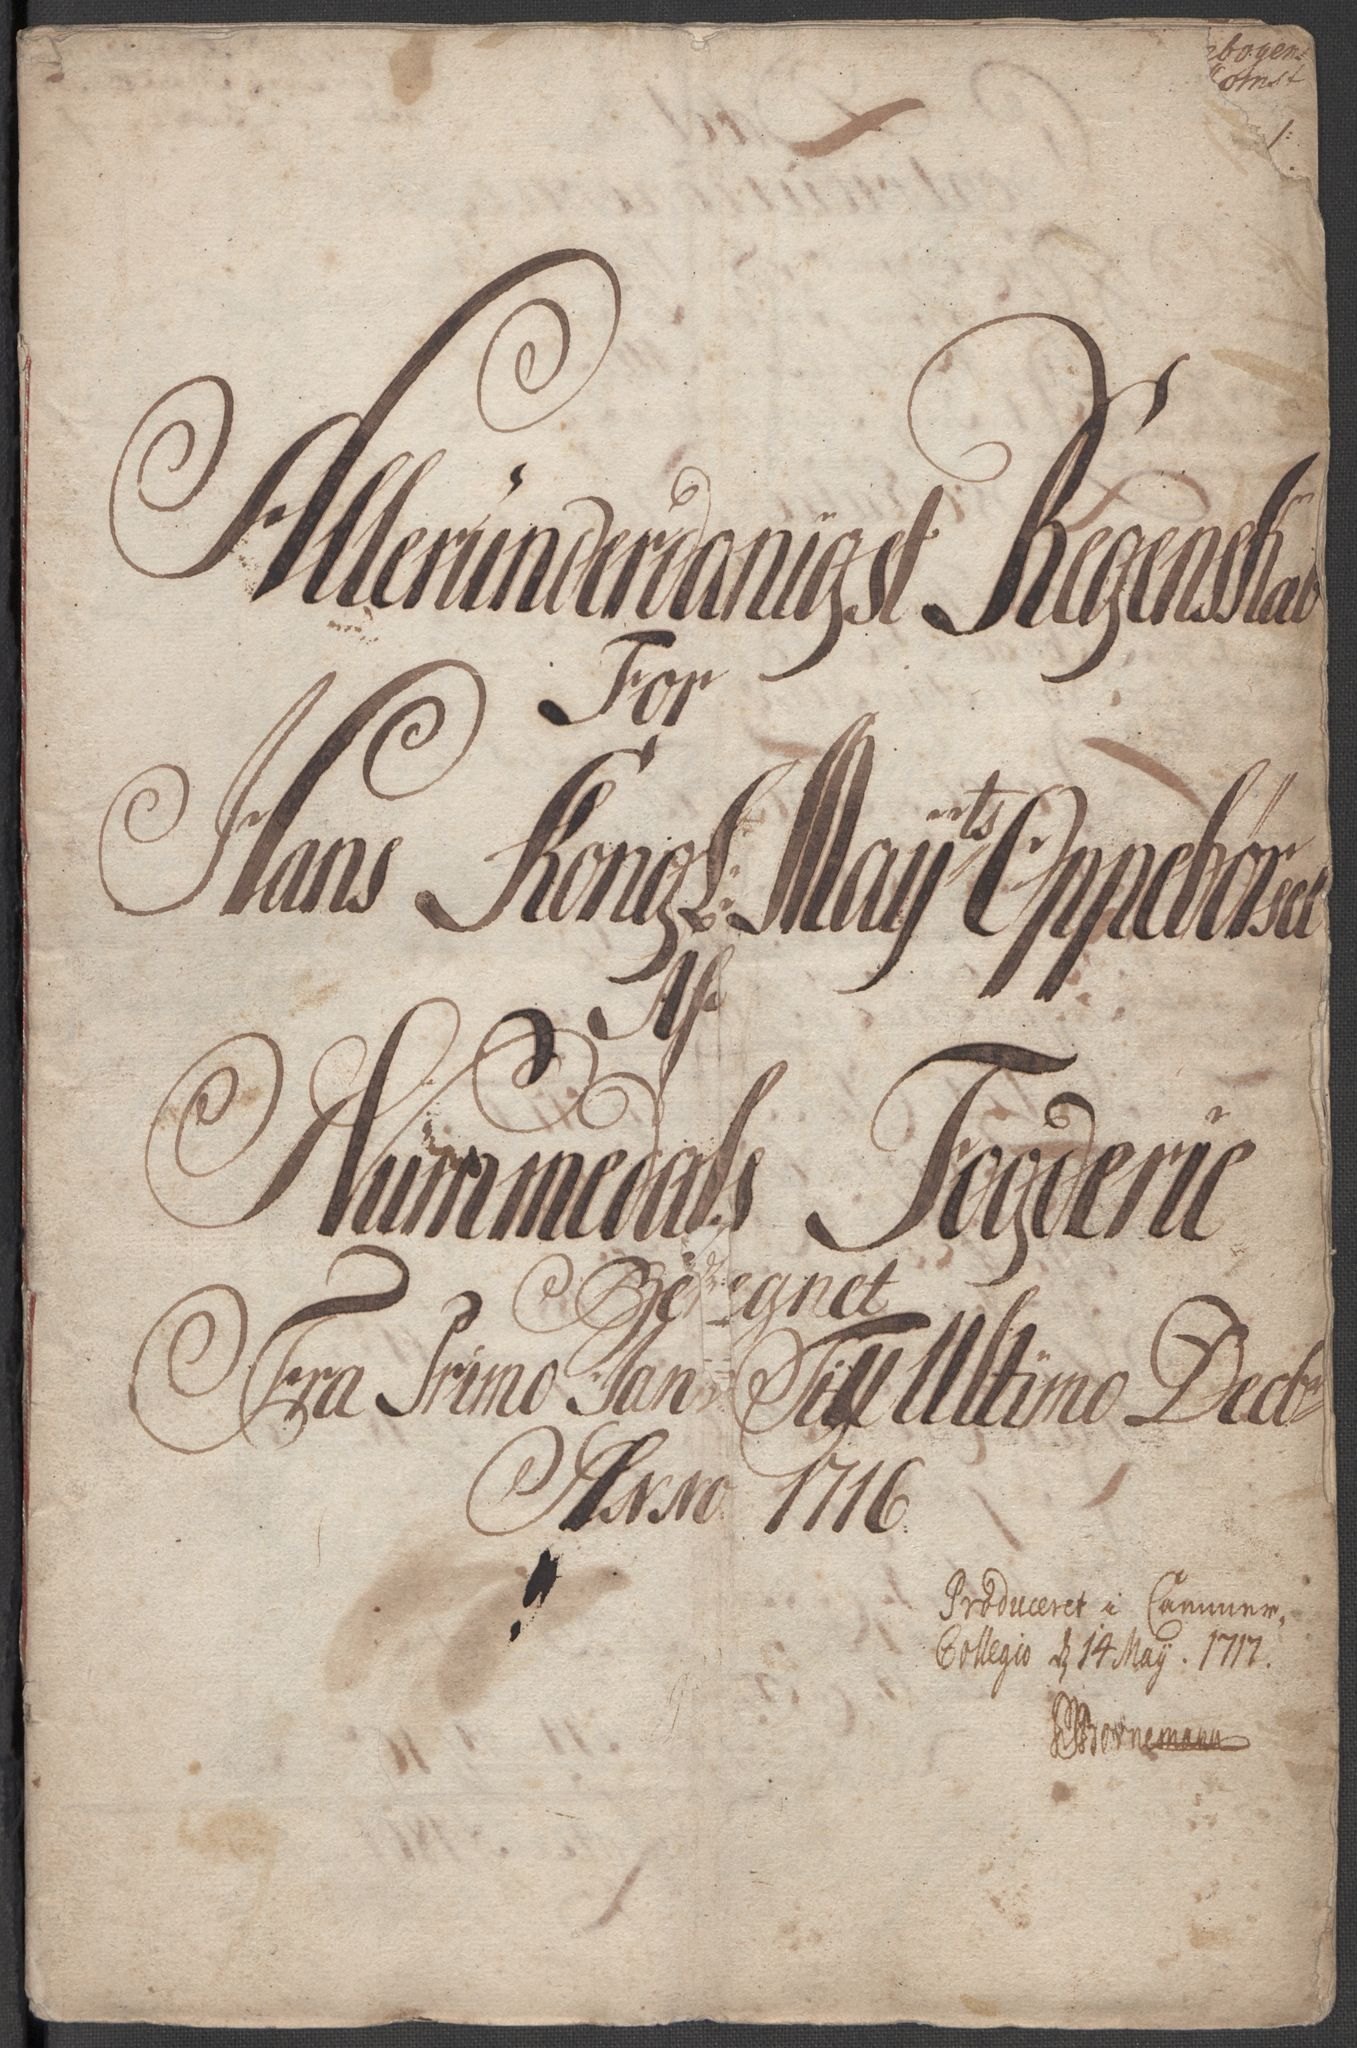 Alleründerdanigst Regenskab
For
Hans Kongl: Maÿts Oppebörsel
Af
Nummedals Fogderie
Beregnet
Fra Primo Jan: Till Ultimo Decbr
Anno 1716
Produceret i Cammer,
Collegio d. 14 Maÿ. 1717.
Bornemann